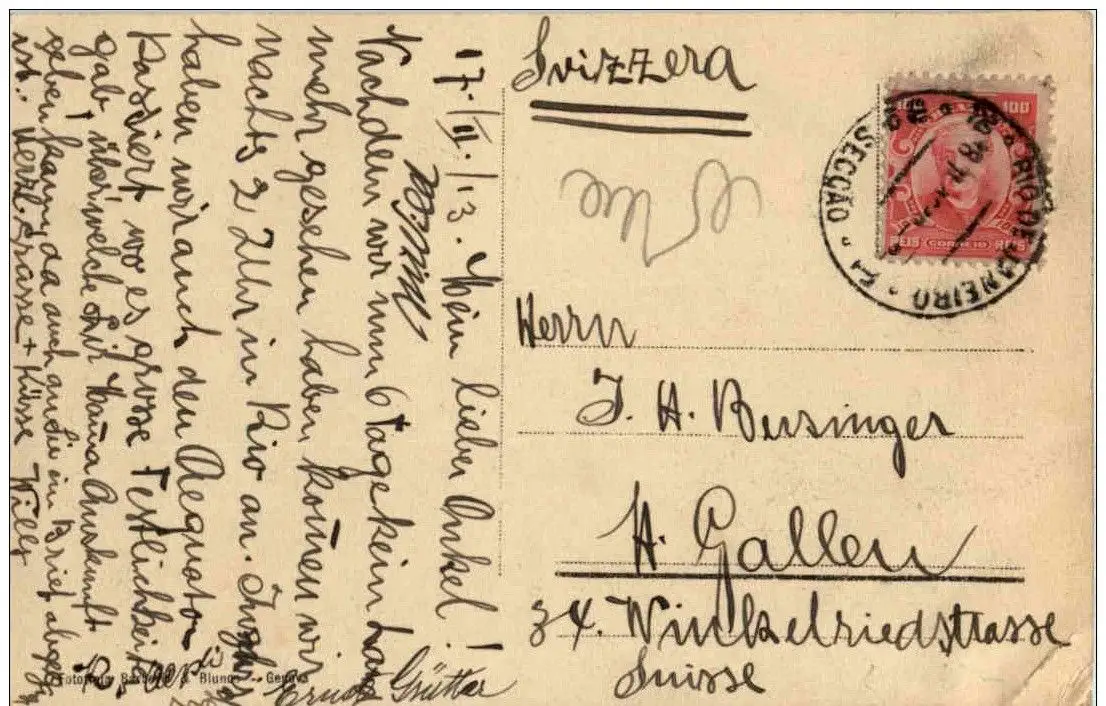 17./II./13. Mein lieber Onkel!
Nachdem wir nun 6 Tage kein Land
mehr gesehen haben kom̄en wir
nachts 2 Uhr in Rio an.
haben wir auch den Aequator
Passiert, wo es grosse Festlichkeiten
gab, über welche Dir Mama Auskunft
geben kann, da auch an die ein Brief abgeg.
ist. Herzl. Grüsse + Küsse Willy
Grütter
Fotografia Barbieri & Blungo - Genova
Svizzera
Herrn
J. H. Bersinger
St. Gallen
34. Winkelriedstrasse
Suisse
100 100
REIS CORREIO REIS
RIO DE JANEIRO
SECÇÃO